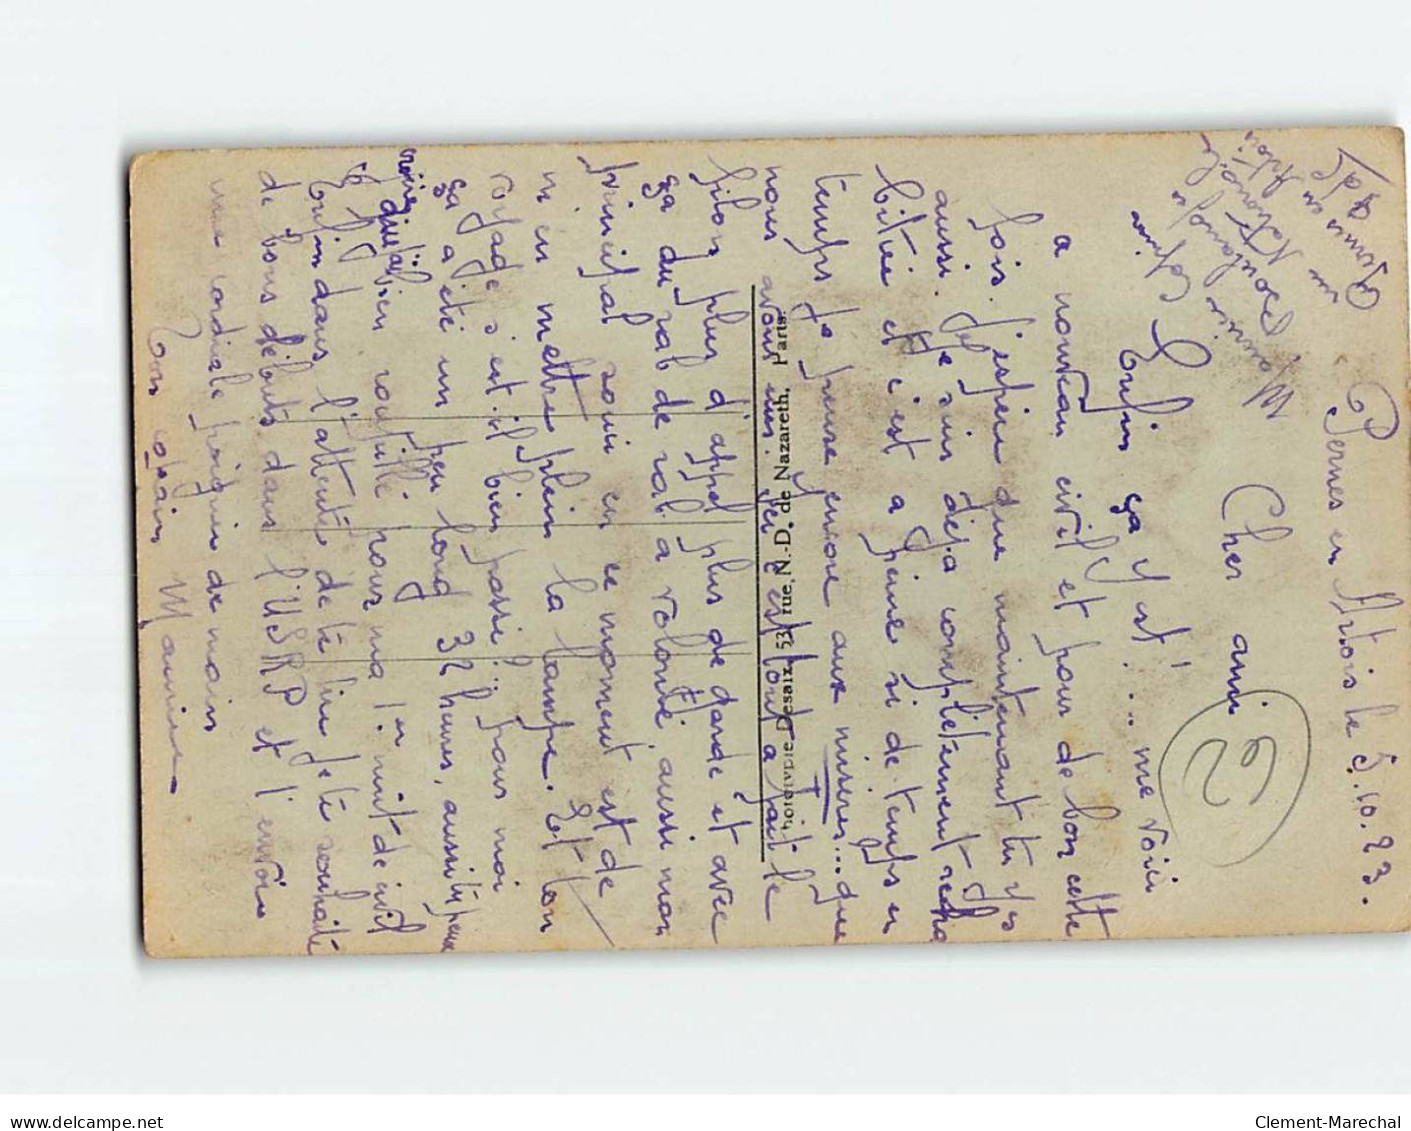 Pernes en Artois le 5.10.23.
Maurice Cap
Boulanger
rue Nationale
à Pernes en Artois
P d C
Cher ami
62
Enfin ça y est !... me voici
a nouveau civil et pour de bon cette
fois. j'espère que maintenant tu y
aussi. Je suis déjà complètement réha
bitué et c'est a peine si de temps en
temps je pense encore aux misères... que
nous avons eues. Ici c'est tout a fait le
filon plus d'appel plus de garde et avec
ça du rab de rab a volonté aussi mon
principal souci en ce moment est de
m'en mettre plein la lampe. Et ton
voyage s'est-il bien passé ? pour moi
ça a été un peu long 32 heures, aussi tu peux
croire que j'ai bien roupillé pour ma 1ère nuit de civil
Enfin dans l'attente de te lire je te souhaite
de bons débuts dans l'USRP et t'envoie
une cordiale poignée de main
Ton copain Maurice
Phototypie Desaix, 53, rue N.-D. de Nazareth, Paris.
Clement-Marechal
www.delcampe.net